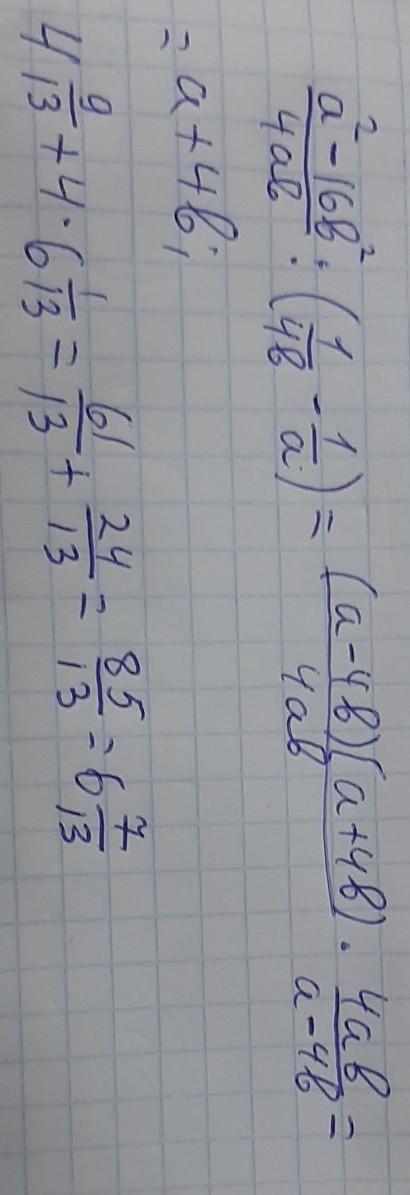 \frac{a^2 - 16b^2}{4ab} : \left(\frac{1}{4b} - \frac{1}{a}\right) = \frac{(a-4b)(a+4b)}{4ab} \cdot \frac{4ab}{a-4b} =
= a + 4b;
4\frac{9}{13} + 4 \cdot 6\frac{1}{13} = \frac{61}{13} + \frac{24}{13} = \frac{85}{13} = 6\frac{7}{13}